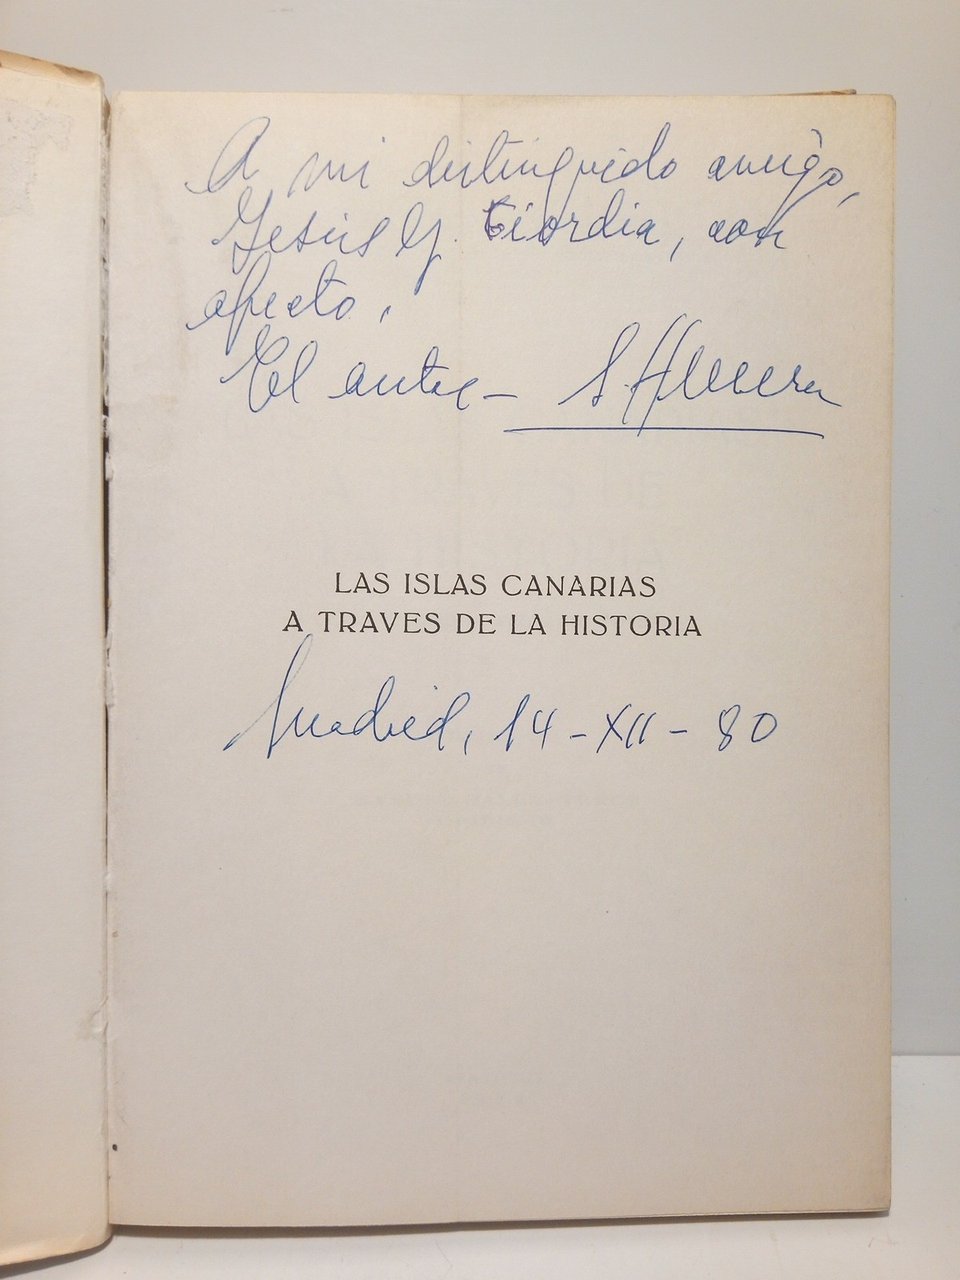 A mi distinguido amigo,
Jesús G. Ciordia, con
afecto.
El autor – S. Herrera
LAS ISLAS CANARIAS
A TRAVES DE LA HISTORIA
Madrid, 14-XII-80